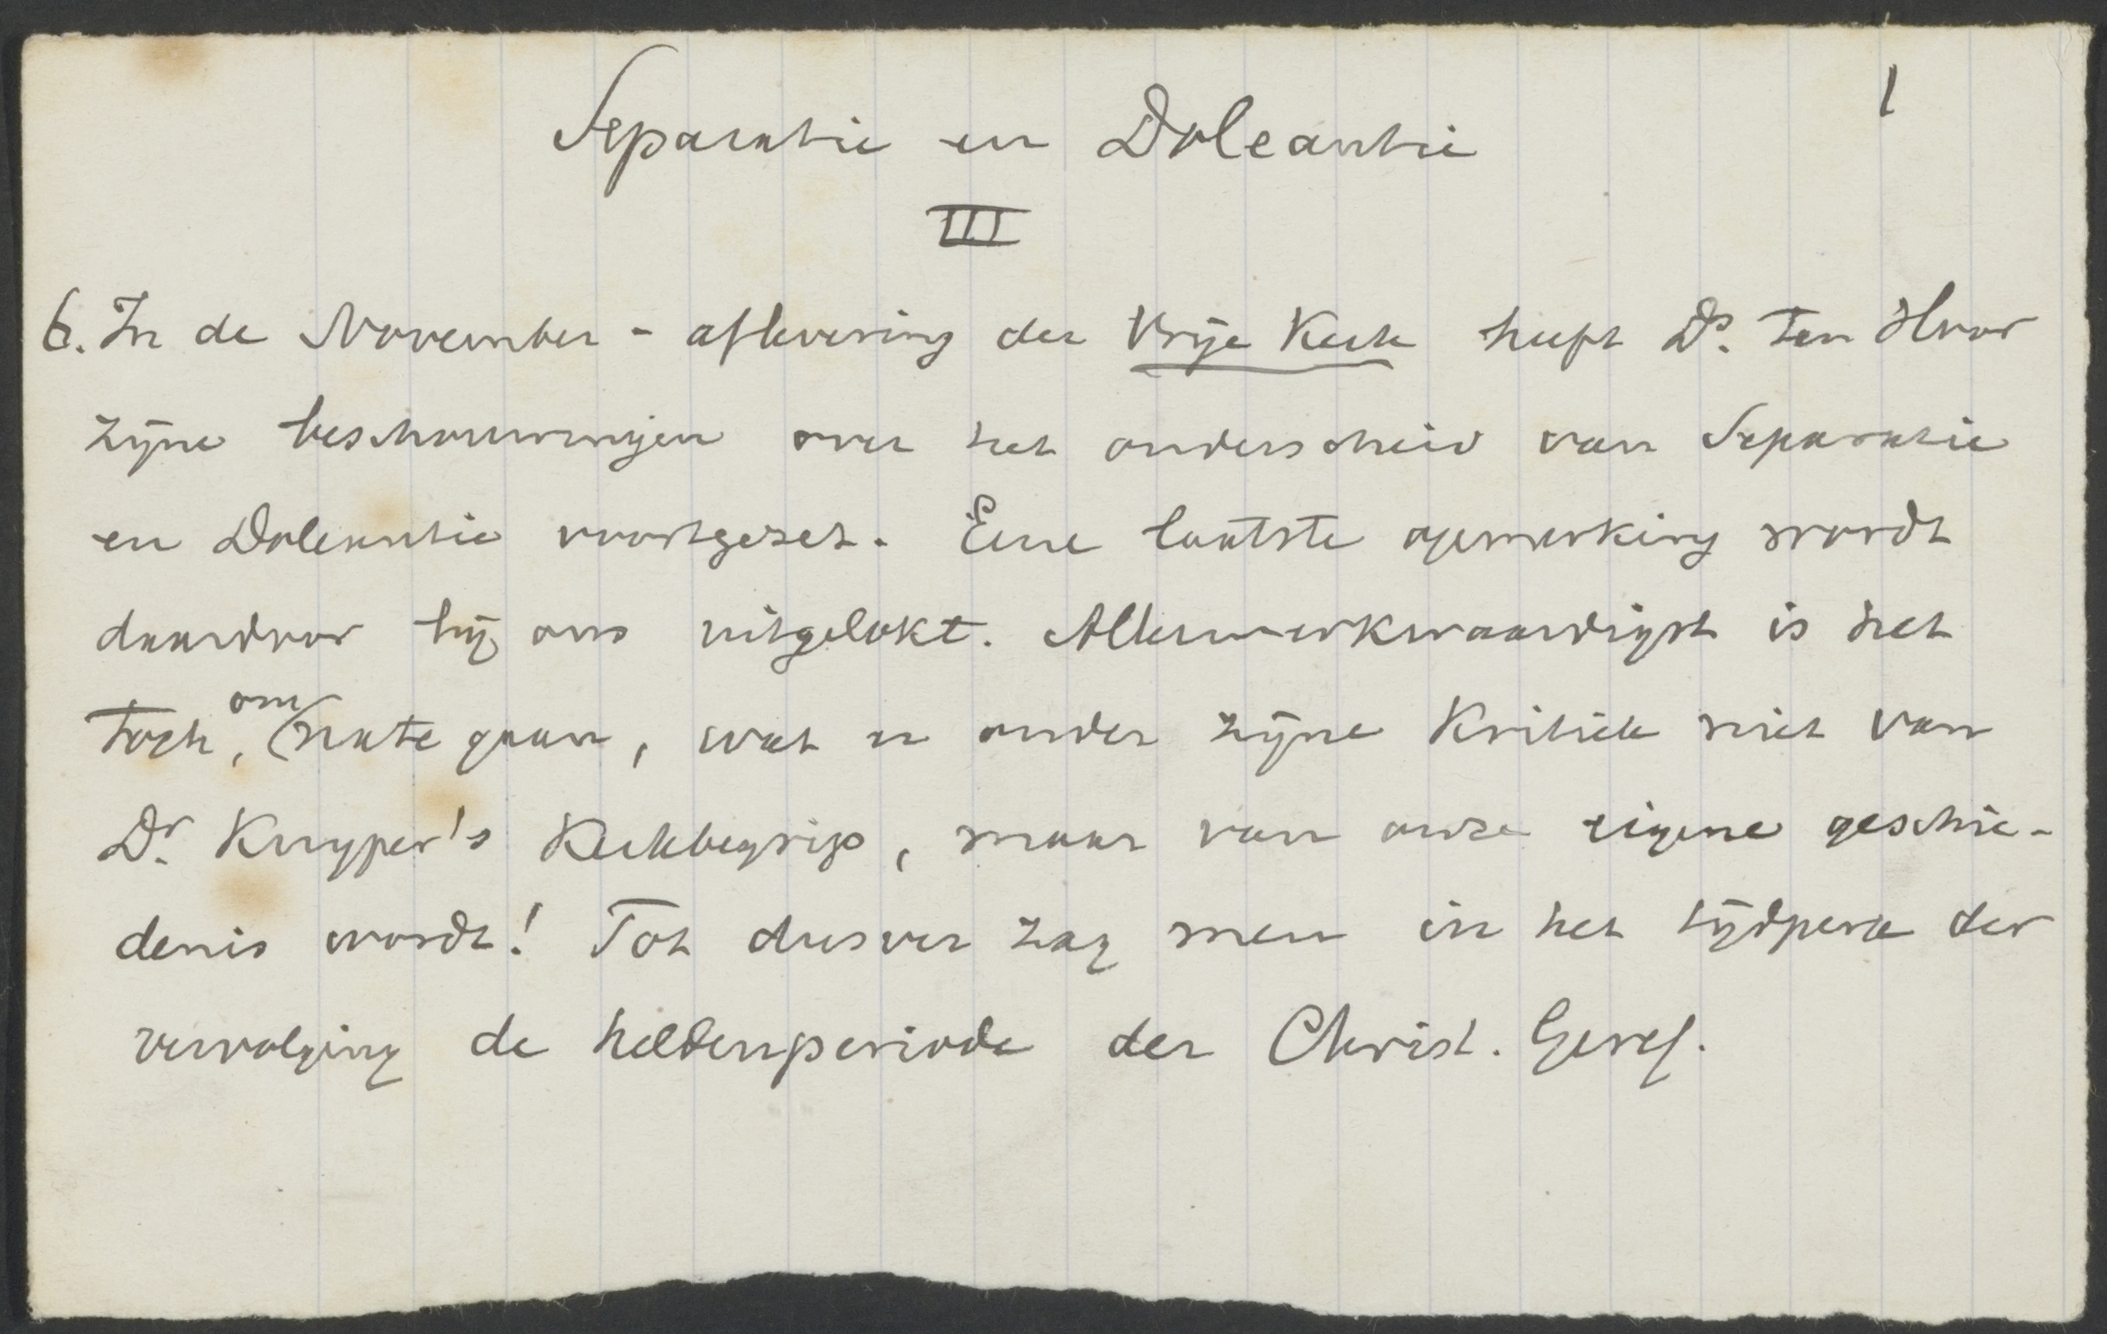 1
Separatie en Doleantie
III
6. In de November - aflevering der Vrije Kerk heeft Ds. Ten Hoor
zijne beschouwingen over het onderscheid van Separatie
en Doleantie voortgezet. Eene laatste opmerking wordt
daardoor bij ons uitgelokt. Allermerkwaardigst is het
toch, om na te gaan, wat er onder zijne Kritiek niet van
Dr. Kuyper's Kerkbegrip, maar van onze eigene geschie-
denis wordt! Tot dusver zag men in het tijdperk der
vervolging de heldenperiode der Christ. Geref.